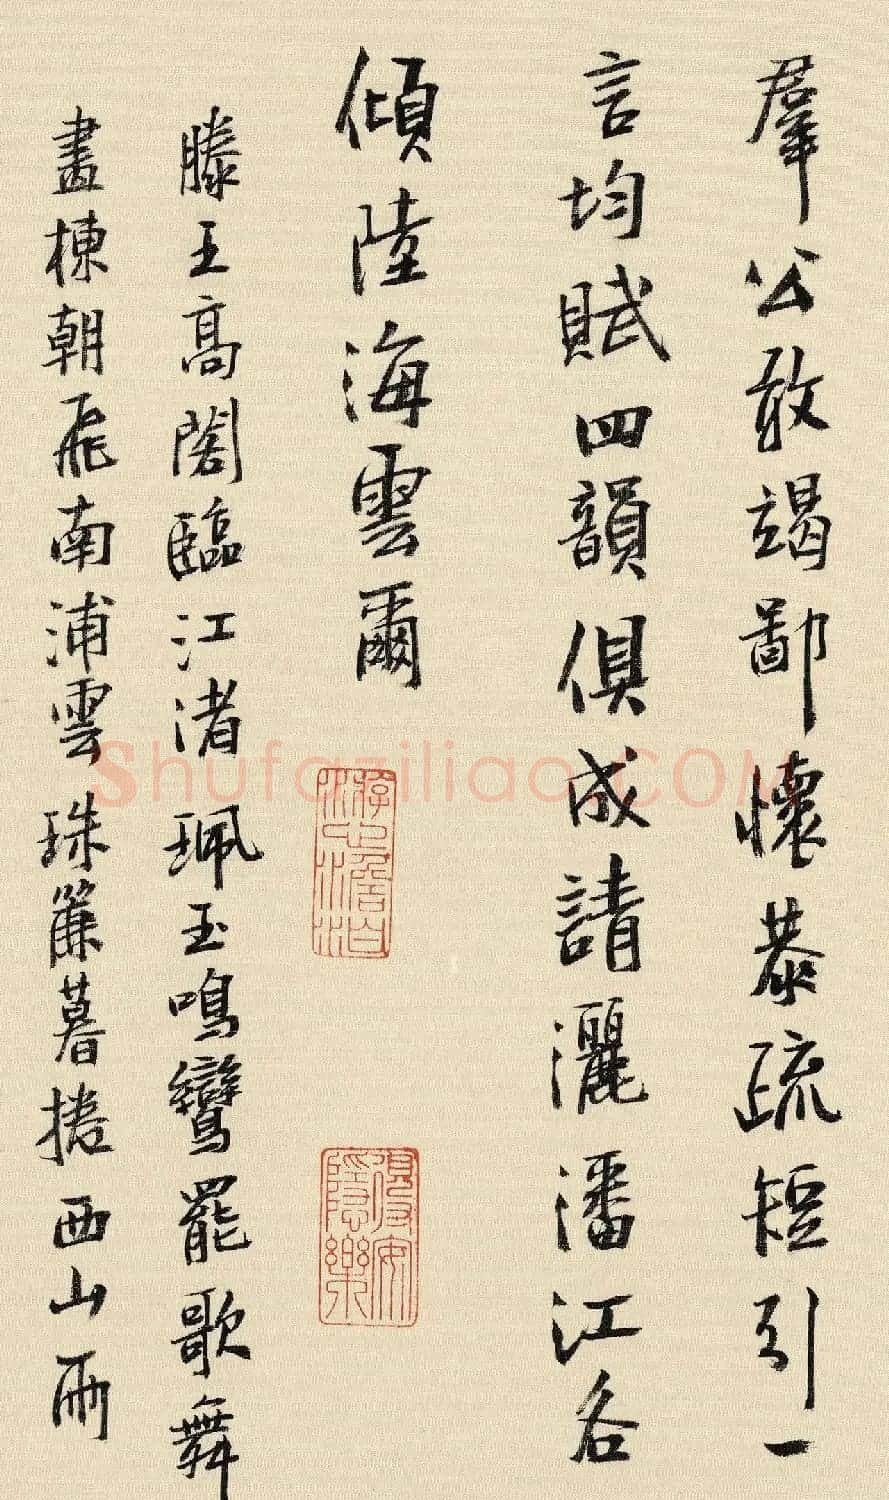 羣公敢竭鄙懷恭疏短引一
言均賦四韻俱成請灑潘江各
傾陸海雲爾
滕王高閣臨江渚珮玉鳴鸞罷歌舞
畫棟朝飛南浦雲珠簾暮捲西山雨
Shufaziliao.COM